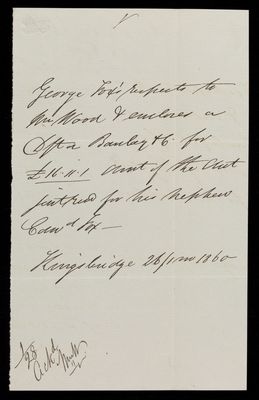 George Fox's respects to
Mr Wood & encloses a
Dft a Barclay & Co for
£16.11.1 amt of the acct
just recd for his nephew
Edwd Fox —
Kingsbridge 26/1 mo 1860
1/28
Ackd